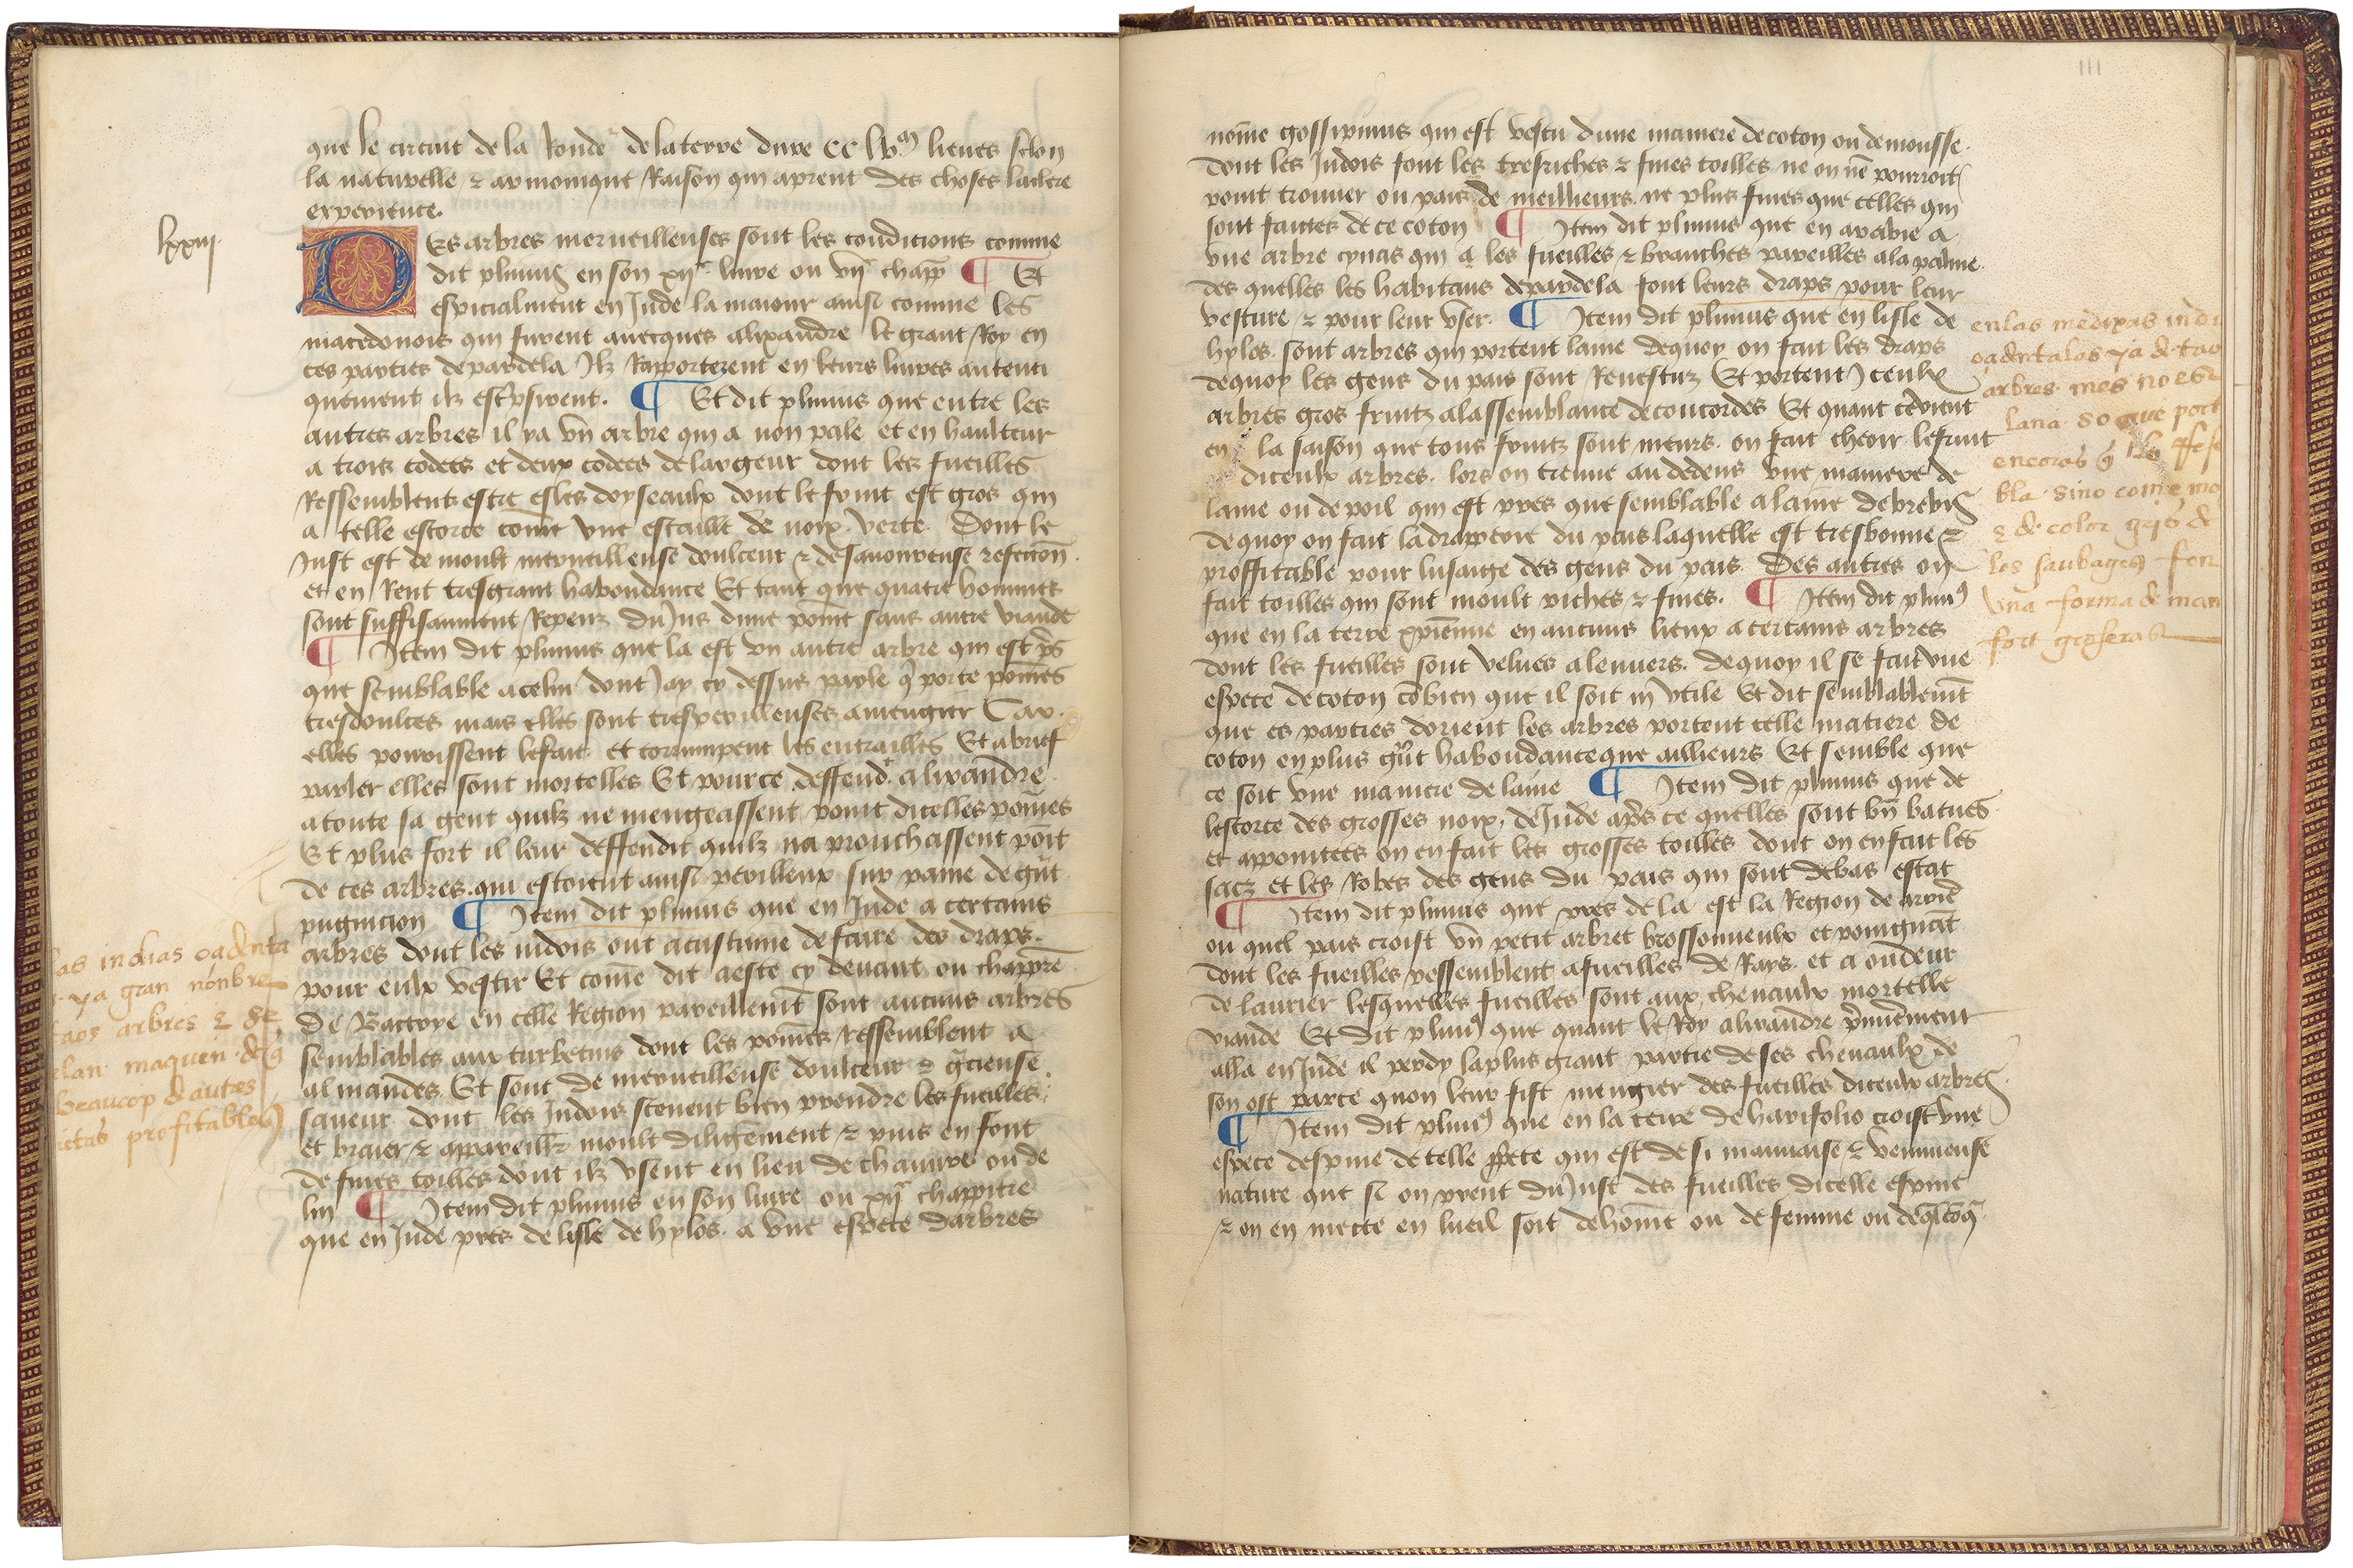 que le circuit de la Ronde de la terre dure CC lv.m lieues selon
la naturelle & armonique Raison qui aprent des choses la clere
experience.
lxxiij.
Des arbres merueilleuses sont les conditions comme
dit plinius en son xije liure ou vije chapp ¶ Et
especialment en Jnde la maiour ainsi comme les
macedonois qui furent auecques alixandre le grant Roy en
ces parties depardela Jlz Rapporterent en leurs liures autenti
quement ilz escpsirent. ¶ Et dit plinius que entre les
autres arbres il ya vn arbre qui a non pale et en haulteur
a trois codees et deux codees de largeur dont les fueilles
Ressemblent estre esles doyseaulx dont le fruit est gros qui
a telle escorce come vne escaille de noix verte Dont le
Just est de moult merueilleuse doulceur & de sauoureuse refection.
et en Rent tresgrant habondance Et tant que quatre hommes
sont suffisanment Repeuz du Jus dune pomme sans autre viande
¶ Jtem dit plinius que la est vn autre arbre qui est ps
que semblable a celui dont Jay cy dessus parle q porte pomes
tresdoulces mais elles sont tresperilleuses a mengier Car.
elles pourrissent le fait et corrumpent les entrailles Et a brief
parler elles sont mortelles Et pour ce deffendi alixandre
a toute sa gent quilz ne mengeassent point dicelles pomes
Et plus fort il leur deffendit quilz na prouchassent poit
de ces arbres. qui estoient ainsi perilleux sur paine de gnt
pugnicion ¶ Jtem dit plinius que en Jnde a certains
arbres dont les indois ont acustume de faire des draps.
pour eulx vestir Et come dit a este cy deuant ou chappre
De Bactrye en celle Region pareillemt sont aucuns arbres
semblables aux turbetins dont les pomes ressemblent a
almandes Et sont de merueilleuse doulceur & gcieuse
saueur dont les Jndois sceuent bien prendre les fueilles.
et braier & appareillr moult diligemment & puis en font
de fines toilles dont ilz vsent en lieu de chanure ou de
lin ¶ Jtem dit plinius en son liure ou xije chappitre
que en Jnde pres de lisle de hylos. a vne espece darbres
las indias oadenta
ya gran nonbre
taos arbres & se
maquen de q
beaucop & autres
profitables
111
nome gossipinus qui est vestu dune maniere de coton ou de mousse.
Dont les Jndois font les tresriches & fines toilles ne on ne pourroit
point trouuer ou pais de meillieurs ne plus fines que celles qui
sont faites de ce coton ¶ Jtem dit plinius que en arabie a
vne arbre cynas qui a les fueilles & branches pareilles a la palme.
des quelles les habitans depardela font leurs draps pour leur
vesture & pour leur vser. ¶ Jtem dit plinius que en lisle de
hylos. sont arbres qui portent laine dequoy on fait les draps
dequoy les gens du pais sont Reuestuz Et portent Jceulx
arbres gros fruitz a lassemblance de coucordes Et quant ce vient
en la saison que tous fruitz sont meurs. on fait cheoir le fruit
diceulx arbres. lors on treuue au dedens vne maniere de
laine ou de poil qui est pres que semblable a laine de brebis
de quoy on fait la drapperie du pais laquelle est tresbonne &
proffitable pour lusaige des gens du pais Des autres on
fait toilles qui sont moult riches & fines. ¶ Jtem dit plini9
que en la terre xpienne en aucuns lieux a certains arbres
dont les fueilles sont velues a lenuers. dequoy il se fait vne
espece de coton cobien que il soit in vtile Et dit semblablemt
que es parties dorient les arbres portent celle matiere de
coton en plus grat habondance que aillieurs Et semble que
ce soit vne maniere de laine ¶ Jtem dit plinius que de
lescorce des grosses noix de Jnde aps ce quelles sont bn batues
et appointees on en fait les grosses toilles dont on en fait les
sacz et les Robes des gens du pais qui sont de bas estat
¶ Jtem dit plinius que pres de la est la Region de
ou quel pais croist vn petit arbret brossonneulx et poingnat
dont les fueilles ressemblent a fueilles de Rays. et a oudeur
de laurier lesquelles fueilles sont aux cheuaulx mortelle
viande Et dit plini9 que quant le Roy alixandre pmieremet
alla en Jnde il perdy la plus grant partie de ses cheuaulx de
son ost parce quon leur fist mengier des fueilles diceulx arbres.
¶ Jtem dit plini9 que en la terre de harifolio croist vne
espece despine de telle sorte qui est de si mauuaise & venimeuse
nature que se on prent du Just des fueilles dicelle espine
& on en mecte en lueil soit de home ou de femme ou de qlcoq
en las medixas indi
oadentalas ya de tao
arbres. mes no es
lana so que port
encoras q
bla sino come mo
& de color gris de
los saubages fon
vna forma de man
fort groseras